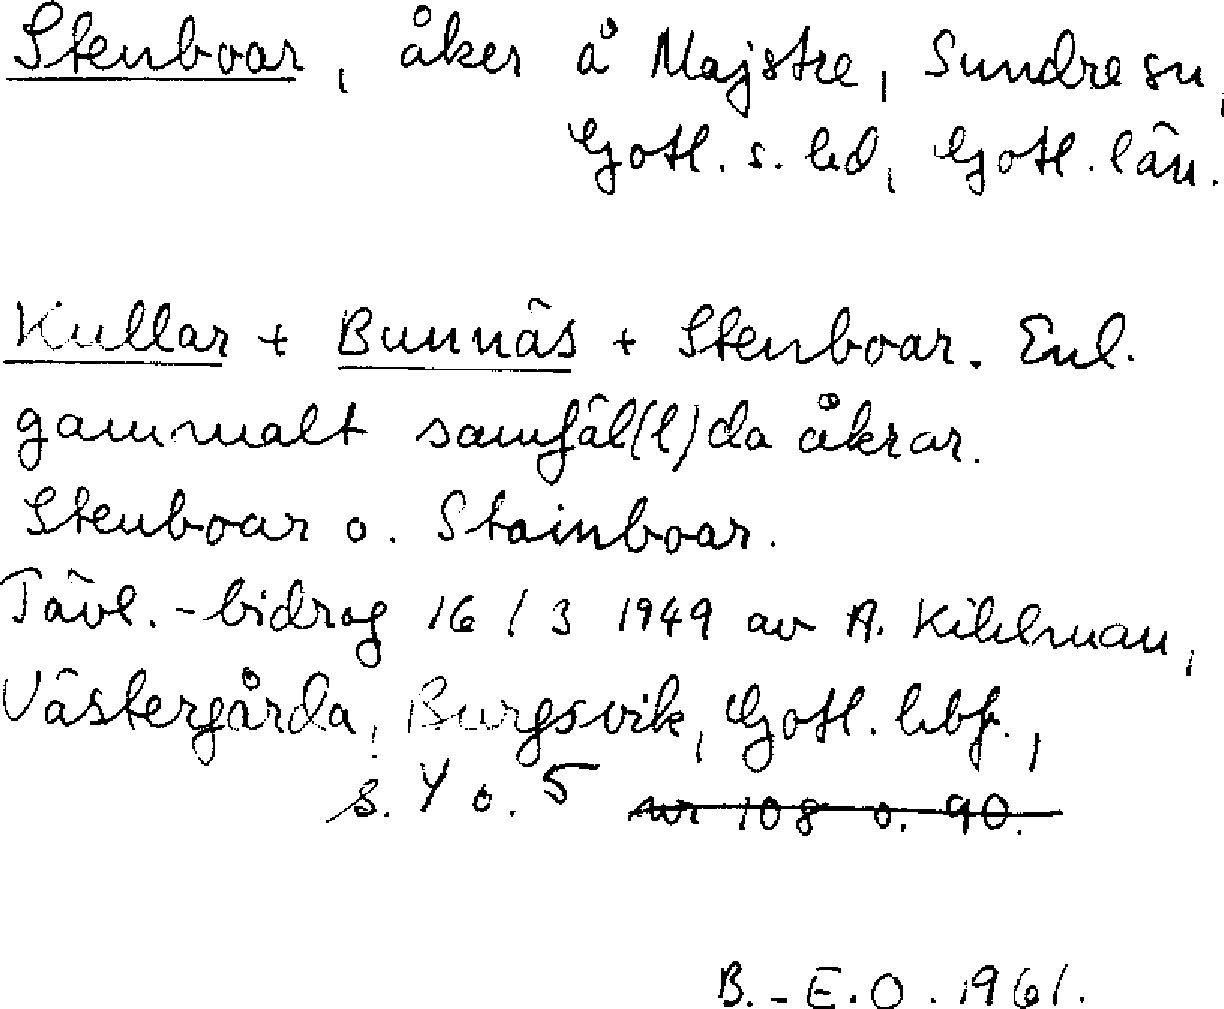 Stenboar, åker å Majstre, Sundre sn,
Gotl. s. hd, Gotl. län.
Kullar + Bunnäs + Stenboar. Enl.
gammalt samfäl(l)da åkrar.
Stenboar o. Stainboar.
Tävl.-bidrag 16/3 1949 av A. Kihlman,
Västergårda, Burgsvik, Gotl. hbf.,
s. 4 o. 5 nr 108 o. 90.
B.-E.O. 1961.